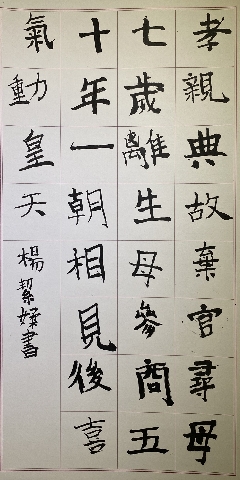 孝親典故棄官尋母
七歲離生母參商五
十年一朝相見後喜
氣動皇天
楊絜媃書